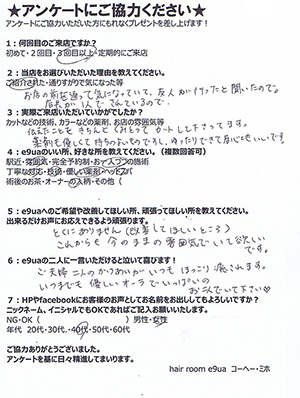 ★アンケートにご協力ください★
アンケートにご協力いただいた方にもれなくプレゼントを差し上げます!
1:何回目のご来店ですか?
初めて・2回目・3回目以上・定期的にご来店
2:当店をお選びいただいた理由を教えてください。
ご紹介された・通りすがりで気になった等
お店の前を通って気になっていて、友人が行ったと聞いたので。
店長が1人でされているので
3:実際ご来店いただいていかがでしたか?
カットなどの技術、カラーなどの薬剤、お店の雰囲気等
伝えたことをきちんとくみとってカットして下さってます。
薬剤も優しくて持ちのよいものですし、ゆったりできて居心地いいです!
4:e9uaのいい所、好きな所を教えてください。(複数回答可)
駅近・雰囲気・完全予約制・お一人づつの施術
丁寧な対応・技術・優しい薬剤・ヘッドスパ
術後のお茶・オーナーの人柄・その他(
5:e9uaへのご希望や改善してほしい所、頑張ってほしい所を教えてください。
出来るだけお声にお応えできるよう頑張ります。
とくにありません(改善してほしいところ)
これからも今のままの雰囲気でいて欲しい
です。
6:e9uaの二人に一言いただけると泣いて喜びます!
ご夫婦二人のかけあいがいつもほっこり癒されます。
いつまでも優しいオーラでいっぱいの
お二人でいて下さい♡
7:HPやfacebookにお客様のお声としてお名前をお出ししてもよろしいですか?
ニックネーム、イニシャルでもOKであればご記入お願いいたします。
NG・OK( )男性・女性
年代 20代・30代・40代・50代・60代
ご協力ありがとうございました。
アンケートを基に日々精進してまいります。
hair room e9ua コーヘー・ミホ